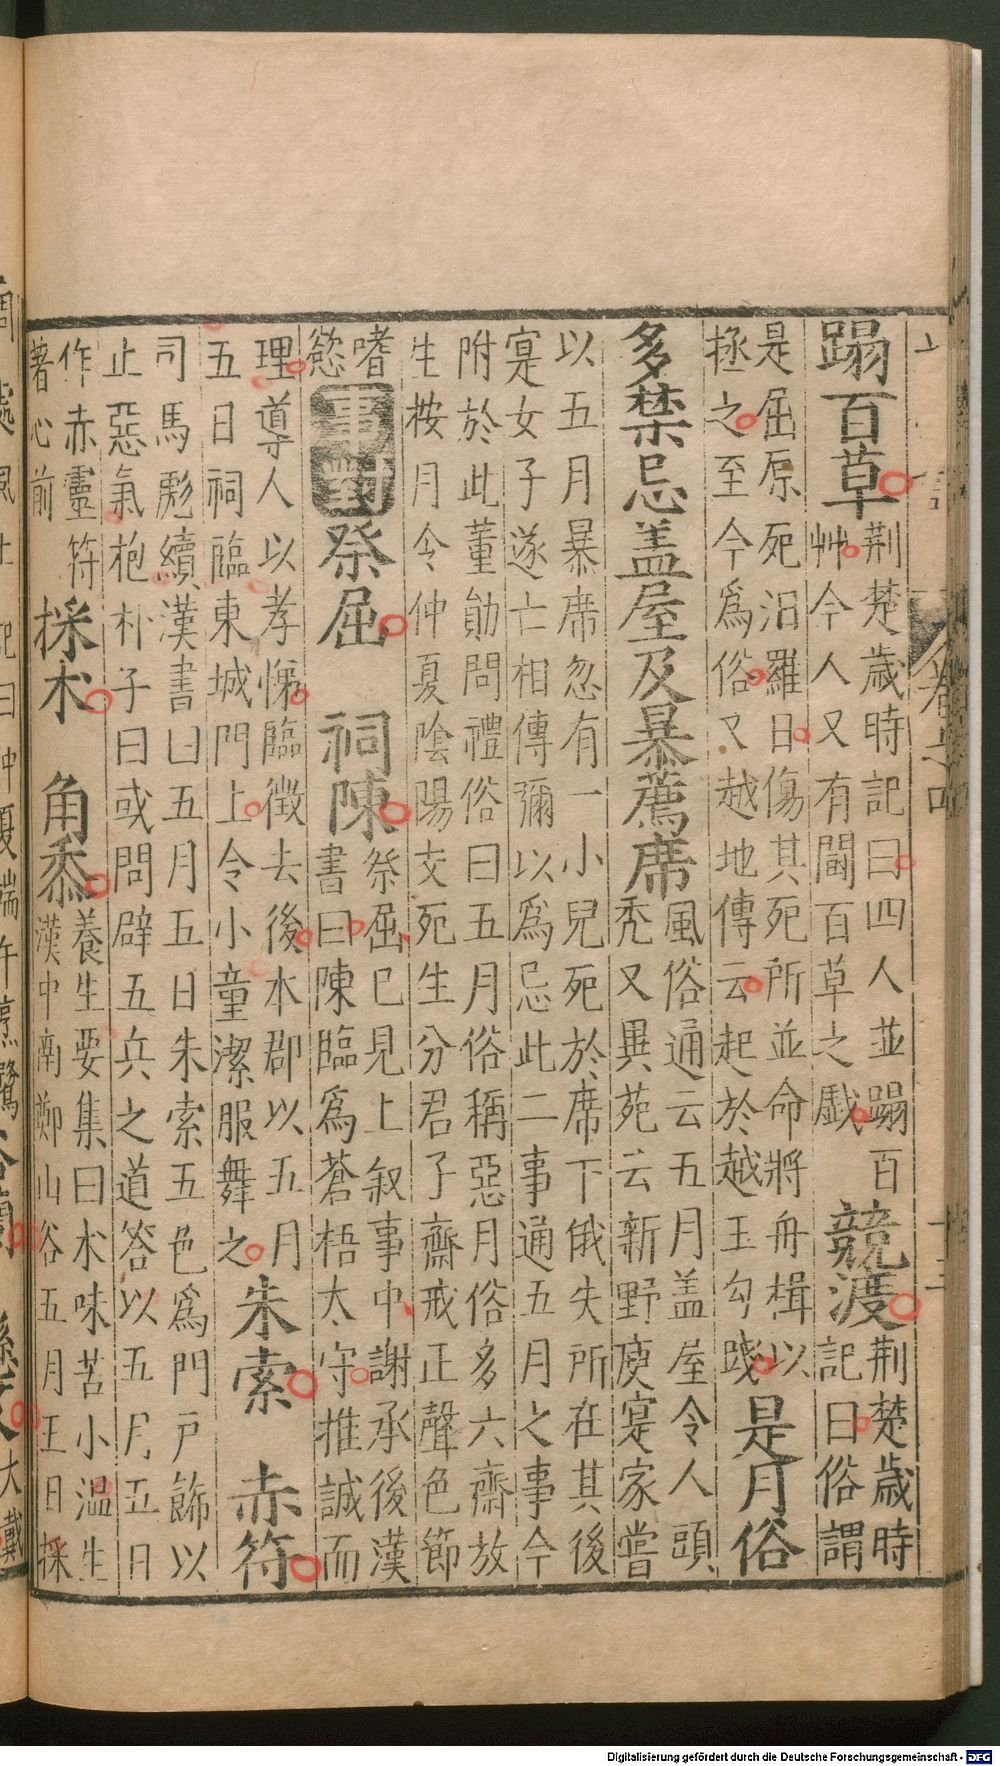 蹋百草
荆楚歳時記曰四人並蹋百
艸今人又有鬬百草之戱
競渡
荆楚歳時
記曰俗謂
是屈原死汨羅日傷其死所並命將舟楫以
拯之至今爲俗又越地傳云起於越王勾踐
是月俗
多禁忌盖屋及暴薦席
風俗通云五月盖屋令人頭
禿又異苑云新野庾寔家嘗
以五月暴席忽有一小兒死於席下俄失所在其後
寔女子遂亡相傳彌以爲忌此二事通五月之事今
附於此董勛問禮俗曰五月俗稱惡月俗多六齋放
生桉月令仲夏隂陽交死生分君子齋戒正聲色節
嗜
慾
事對
祭屈
祠陳
祭屈已見上叙事中謝承後漢
書曰陳臨爲蒼梧太守推誠而
理導人以孝悌臨徵去後本郡以五月
五日祠臨東城門上令小童潔服舞之
朱索
赤符
司馬彪續漢書曰五月五日朱索五色爲門戸飾以
止惡氣枹朴子曰或問辟五兵之道答以五月五日
作赤靈符
著心前
採朮
角黍
養生要集曰朮味苦小温生
漢中南鄭山谷五月五日採
風土記曰仲夏端午烹鶩
大戴
Digitalisierung gefördert durch die Deutsche Forschungsgemeinschaft - DFG